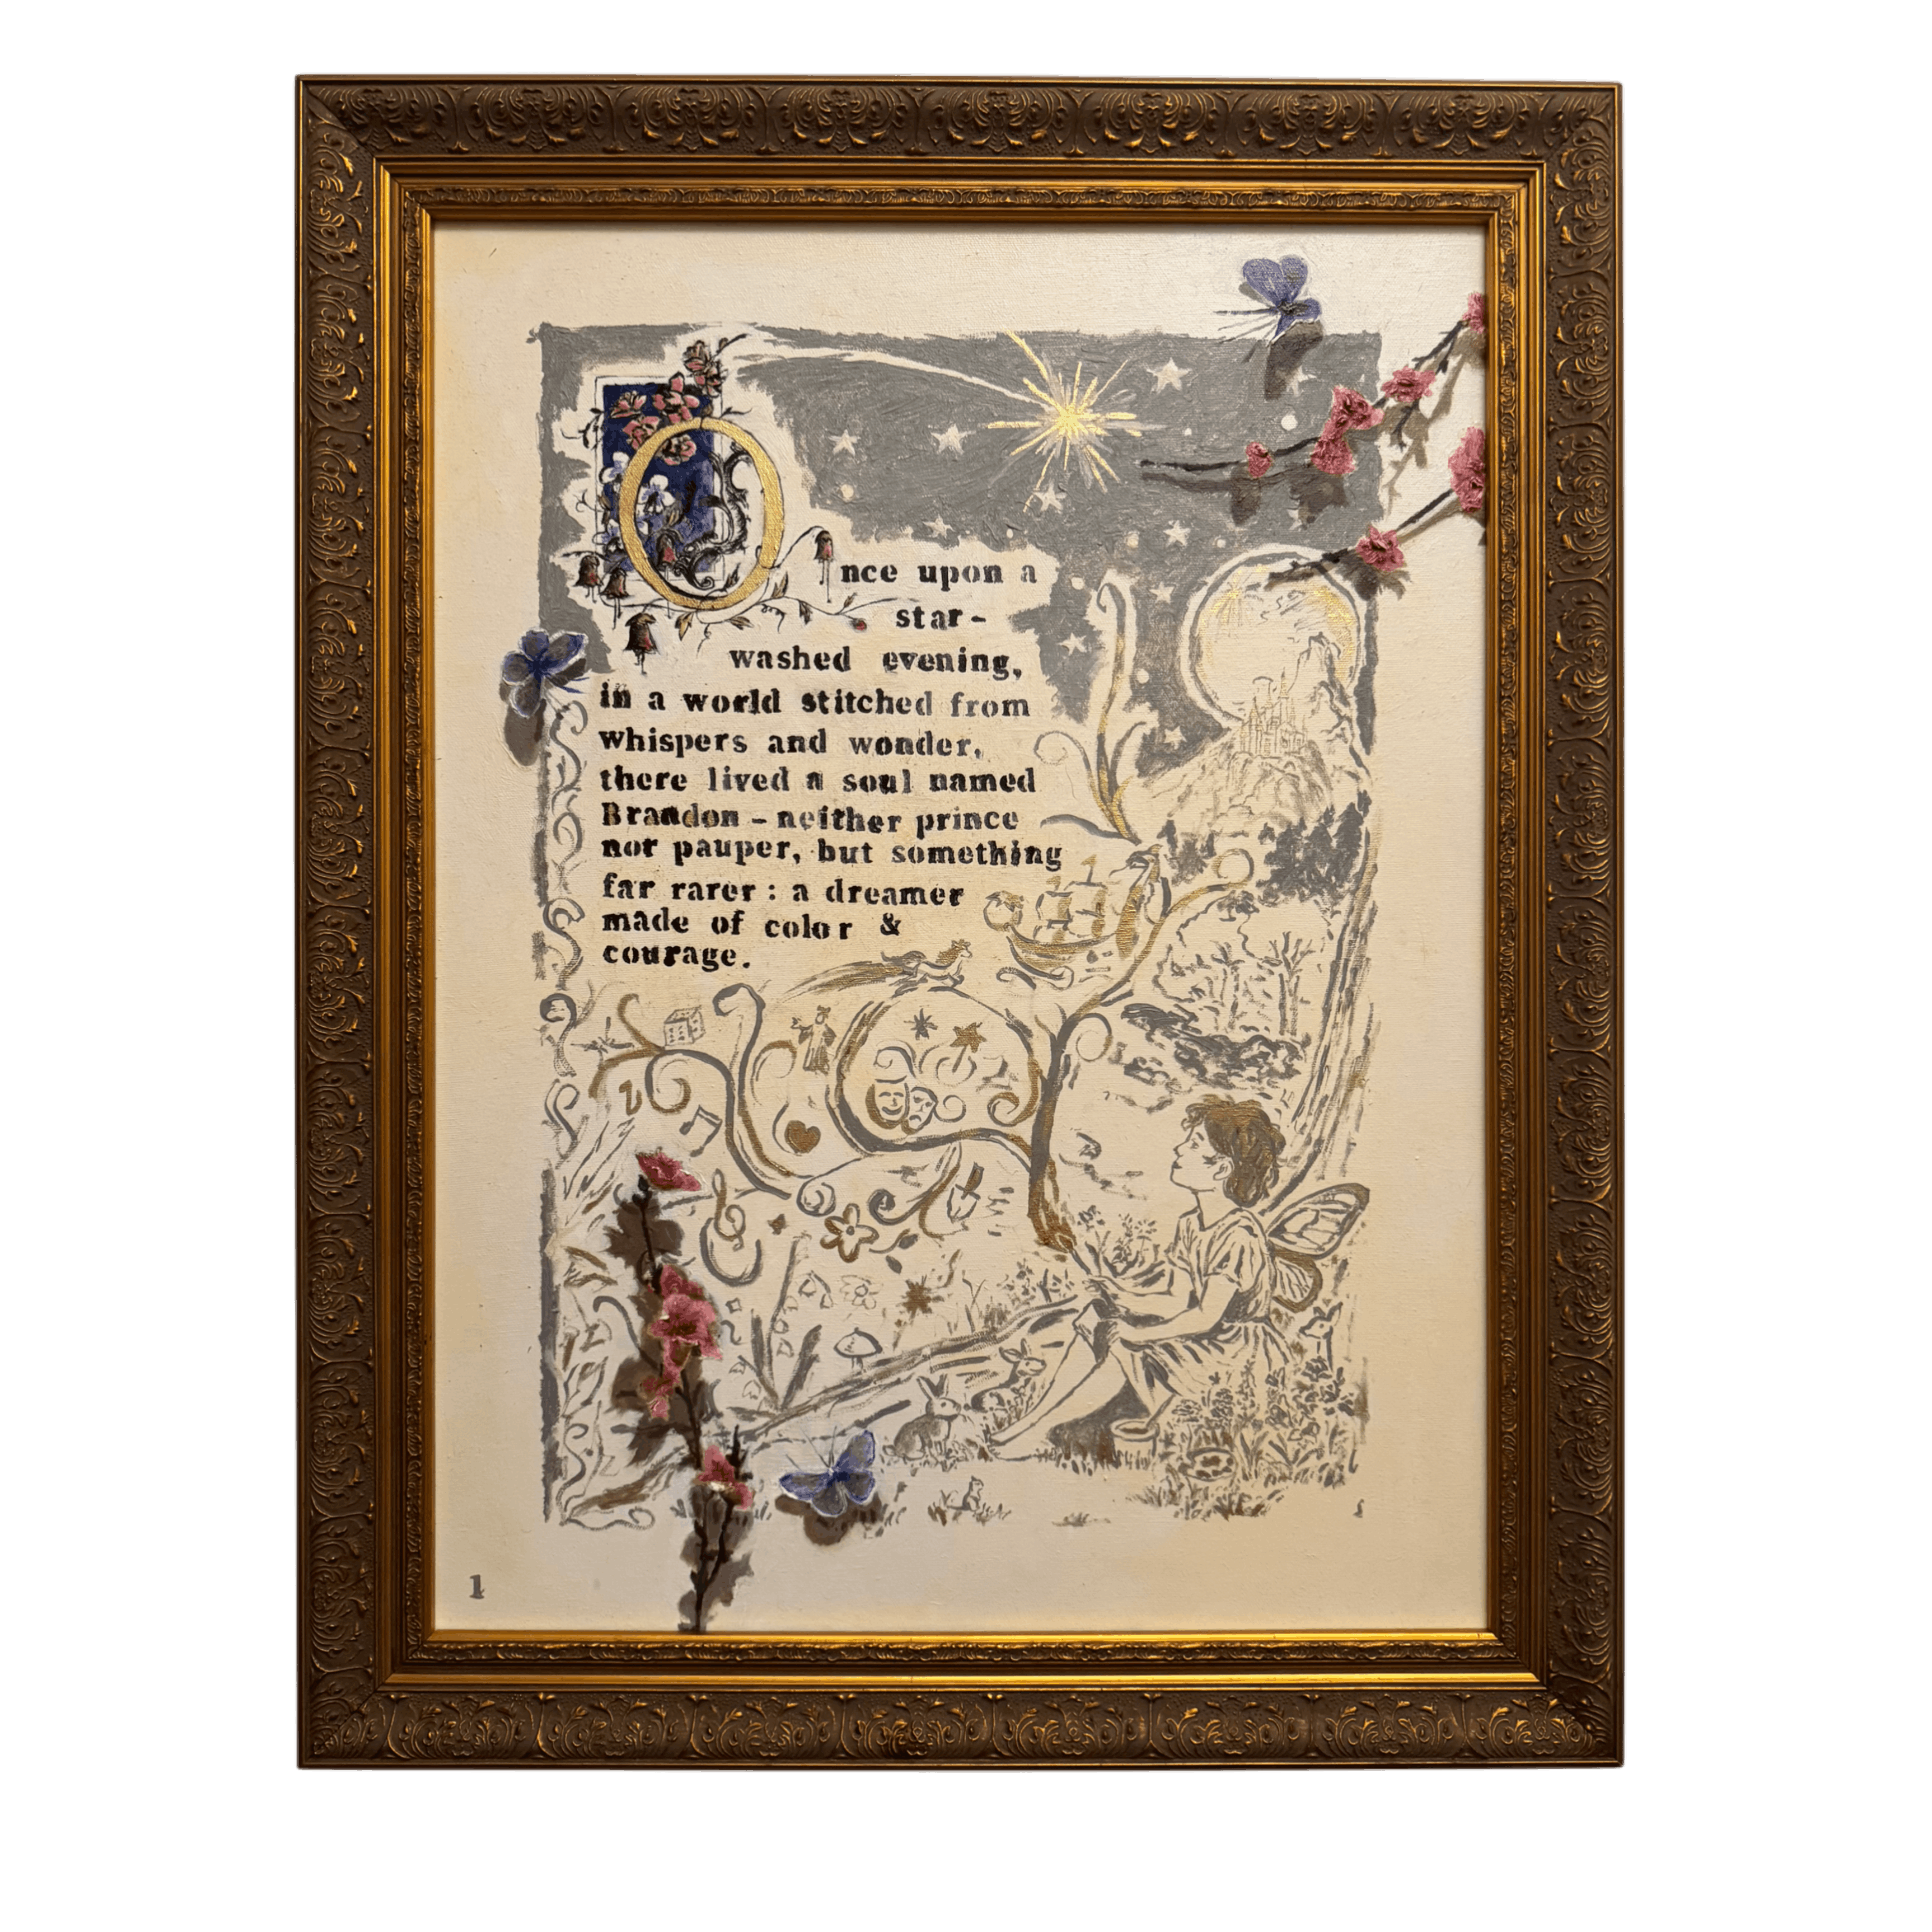 Once upon a
star-
washed evening,
in a world stitched from
whispers and wonder,
there lived a soul named
Brandon - neither prince
nor pauper, but something
far rarer : a dreamer
made of color &
courage.
1